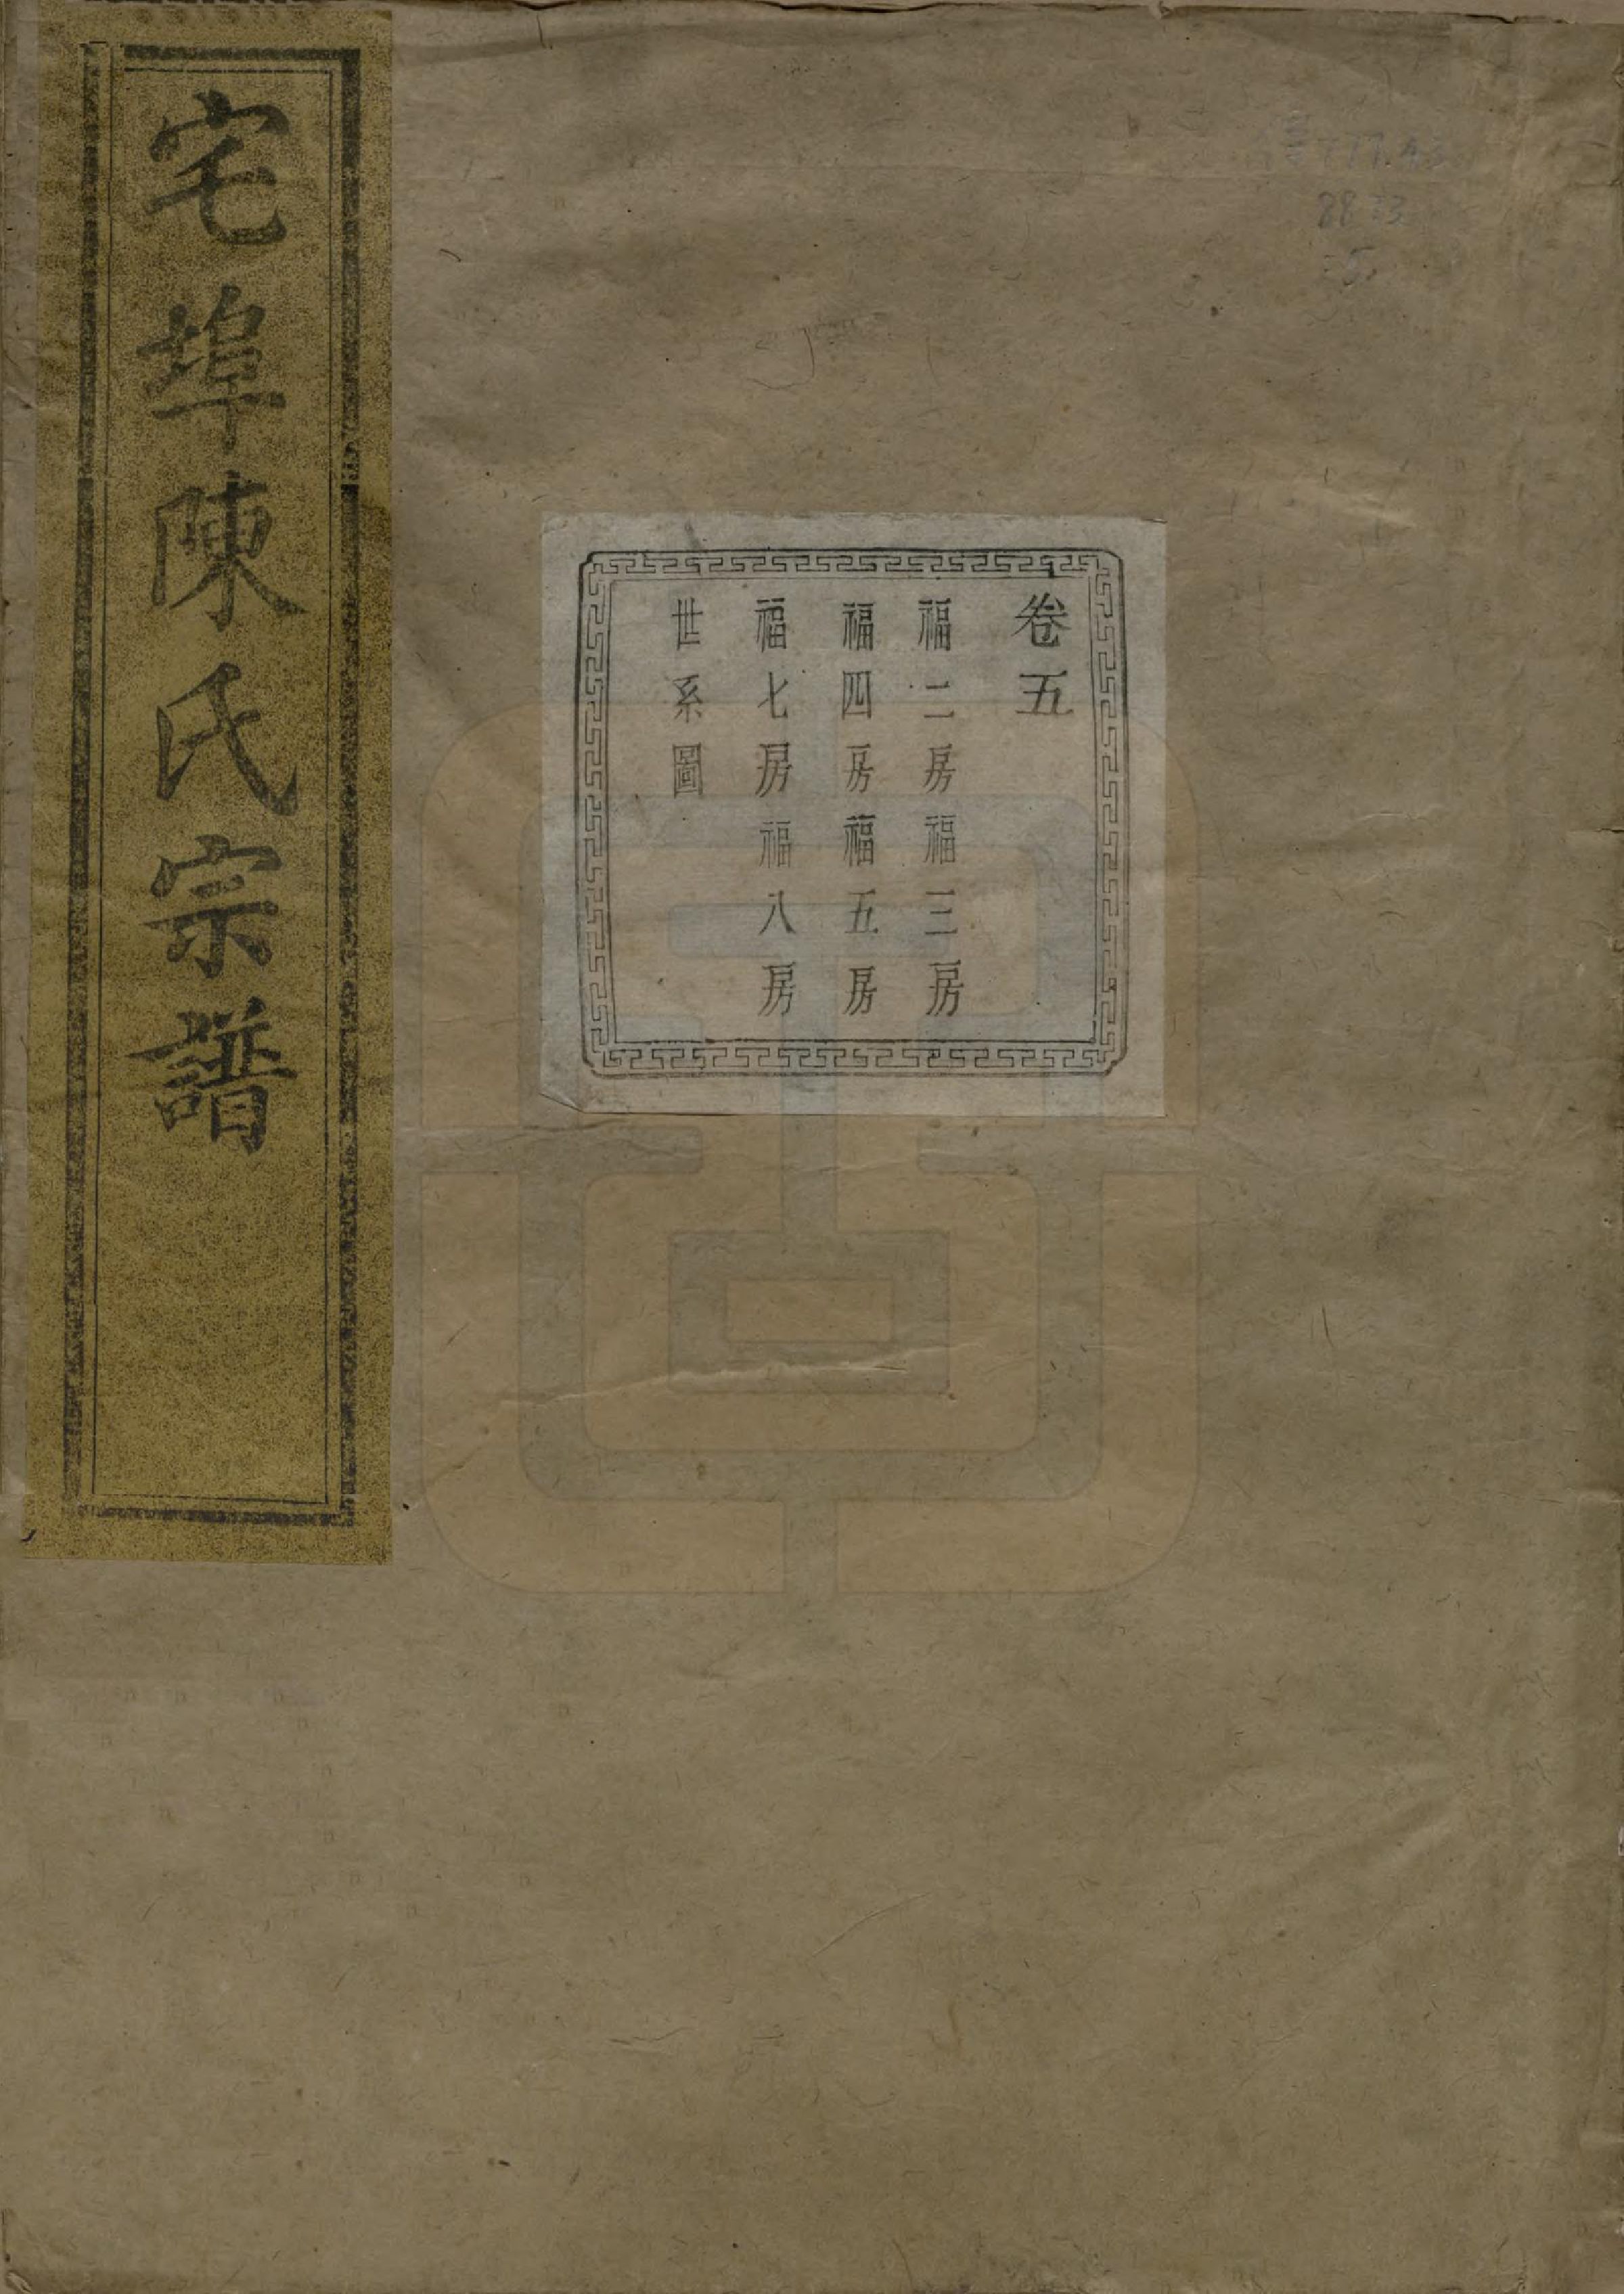 宅埠陳氏宗譜
卷五
福二房福三房
福四房福五房
福七房福八房
世系圖
8833